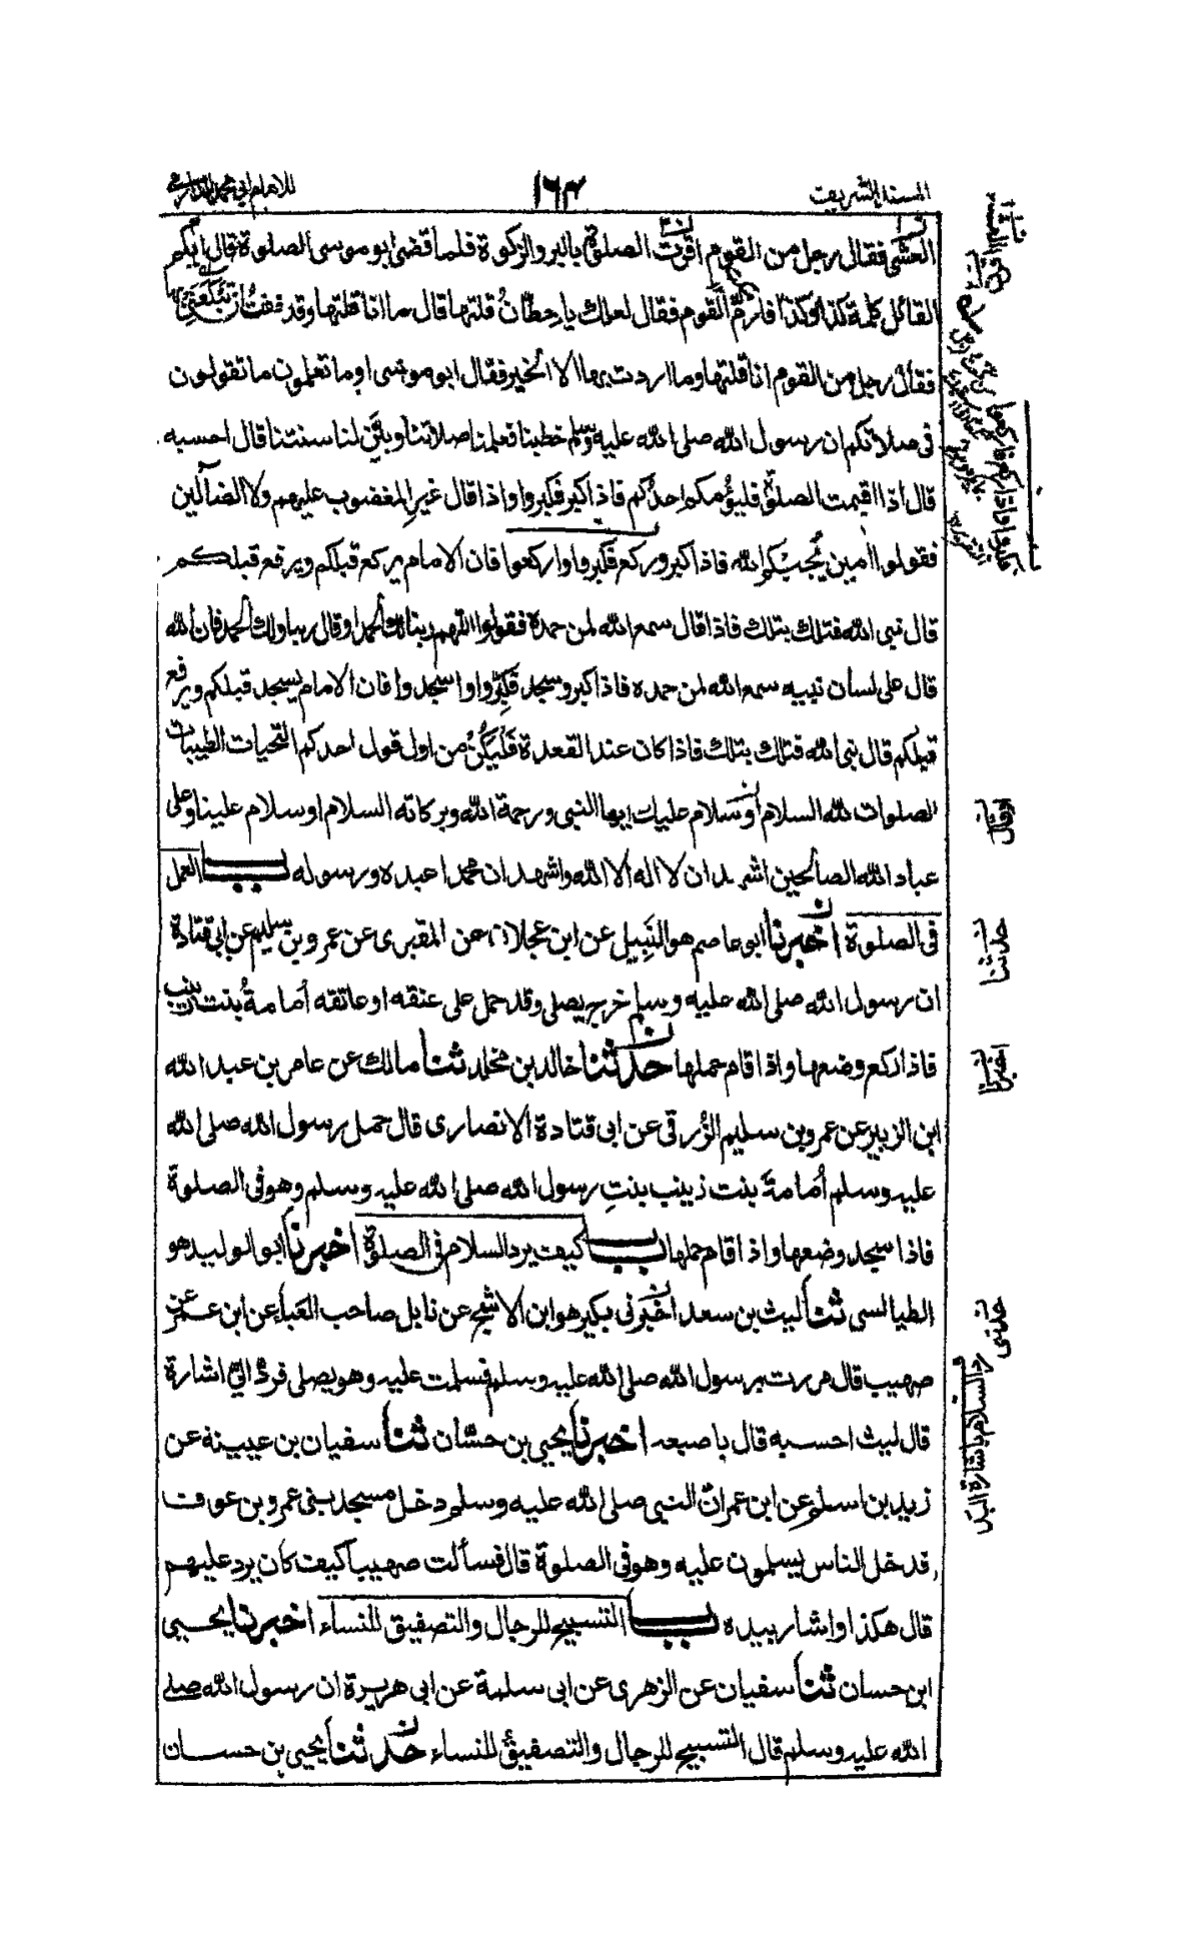 المسند الشريف
١٦٣
للامام ابي محمد الدارمي
العشى فقال رجل من القوم اقرت الصلوة بالبر والزكوة فلما قضى ابو موسى الصلوة قال ايكم
القائل كلمة كذا وكذا فارم القوم فقال لعلك يا حطان قلتها قال ما انا قلتها وقد خفت ان تبكعنى بها
فقال رجل من القوم انا قلتها وما اردت بها الا الخير فقال ابو موسى اوما تعلمون ما تقولون
فى صلاتكم ان رسول الله صلى الله عليه وسلم خطبنا فعلمنا صلاتنا وبين لنا سنتنا قال احسبه
قال اذا اقيمت الصلوة فليؤمكم احدكم فاذا كبر فكبروا واذا قال غير المغضوب عليهم ولا الضالين
فقولوا امين يجبكم الله فاذا كبر وركع فكبروا واركعوا فان الامام يركع قبلكم ويرفع قبلكم
قال نبى الله فتلك بتلك فاذا قال سمع الله لمن حمده فقولوا اللهم ربنا لك الحمد او قال ربنا ولك الحمد فان الله
قال على لسان نبيه سمع الله لمن حمده فاذا كبر وسجد فكبروا واسجدوا فان الامام يسجد قبلكم ويرفع
قبلكم قال نبى الله فتلك بتلك فاذا كان عند القعدة فليكن من اول قول احدكم التحيات الطيبات
الصلوات لله السلام او سلام عليك ايها النبى ورحمة الله وبركاته السلام او سلام علينا وعلى
عباد الله الصالحين اشهد ان لا اله الا الله واشهد ان محمدا عبده ورسوله باب العمل
فى الصلوة اخبرنا ابو عاصم هو النبيل عن ابن عجلان عن المقبرى عن عمرو بن سليم عن ابى قتادة
ان رسول الله صلى الله عليه وسلم خرج يصلى وقد حمل على عنقه او عاتقه أمامة بنت زينب
فاذا ركع وضعها واذا قام حملها حدثنا خالد بن مخلد ثنا مالك عن عامر بن عبد الله
ابن الزبير عن عمرو بن سليم الزرقى عن ابى قتادة الانصارى قال حمل رسول الله صلى الله
عليه وسلم أمامة بنت زينب بنت رسول الله صلى الله عليه وسلم وهو فى الصلوة
فاذا سجد وضعها واذا قام حملها باب كيف يرد السلام فى الصلوة اخبرنا ابو الوليد هو
الطيالسى ثنا ليث بن سعد اخبرنى بكير هو ابن الاشج عن نابل صاحب العباء عن ابن عمر عن
صهيب قال مررت برسول الله صلى الله عليه وسلم فسلمت عليه وهو يصلى فرد الي اشارة
قال ليث احسبه قال باصبعه اخبرنا يحيى بن حسان ثنا سفيان بن عيينة عن
زيد بن اسلم عن ابن عمر ان النبى صلى الله عليه وسلم دخل مسجد بنى عمرو بن عوف
فدخل الناس يسلمون عليه وهو فى الصلوة قال فسألت صهيبا كيف كان يرد عليهم
قال هكذا واشار بيده باب التسبيح للرجال والتصفيق للنساء اخبرنا يحيى
ابن حسان ثنا سفيان عن الزهرى عن ابى سلمة عن ابى هريرة ان رسول الله صلى
الله عليه وسلم قال التسبيح للرجال والتصفيق للنساء حدثنا يحيى بن حسان
او قال
حدثنا
اخبرنا
حدثنى
رد السلام باشارة اليد